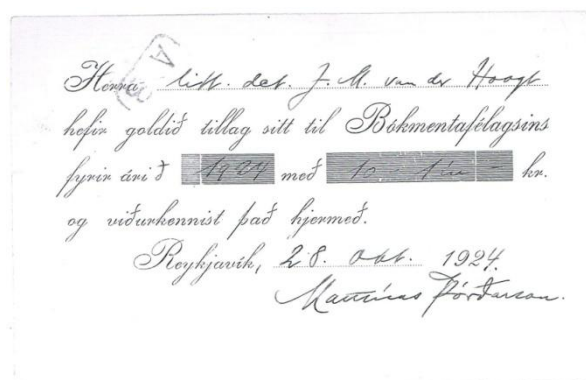 Herra litt. det. J. M. van der Hoogt
hefir goldið tillag sitt til Bókmentafélagsins
fyrir árið 1924 með 10 - tíu - kr.
og viðurkennist það hjermeð.
Reykjavík, 28. okt. 1924.
Matthías Þórðarson.